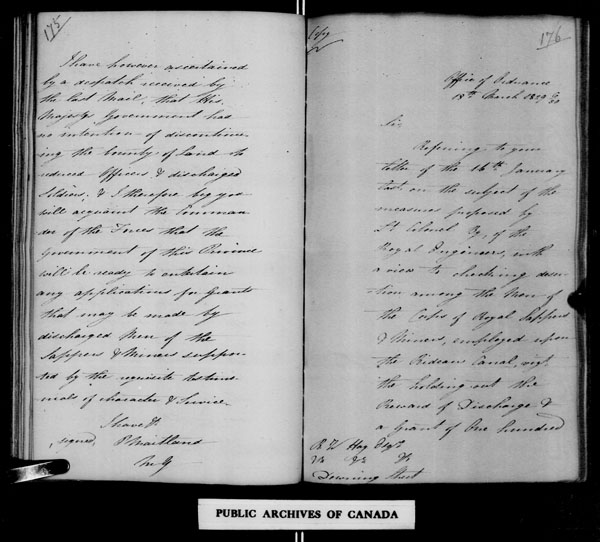 175
I have however ascertained
by a despatch received by
the last Mail, that His
Majesty's Government has
no intention of discontinu-
ing the bounty of land to
reduced Officers & discharged
Soldiers, & I therefore beg you
will acquaint the Comman
der of the Forces that the
Government of this Province
will be ready to entertain
any applications for Grants
that may be made by
discharged Men of the
Sappers & Miners suppor
ted by the requisite testimo
nials of character & Service.
I have &c
signed, P Maitland
Copy
176
Office of Ordnance
18th March
Sir,
Referring to your
letter of the 16th January
last on the subject of the
measures proposed by
Lt Colonel By, of the
Royal Engineers, with
a view to checking deser
tion among the Men of
the Corps of Royal Sappers
& Miners, employed upon
the Rideau Canal, viz
the holding out the
Reward of Discharge &
a Grant of One hundred
R W Hay Esqr
&c &c &c
Downing Street
PUBLIC ARCHIVES OF CANADA